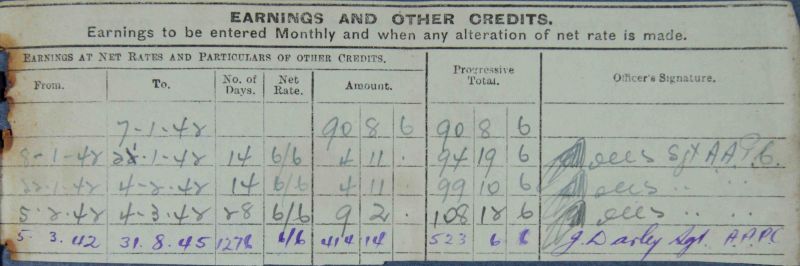 EARNINGS AND OTHER CREDITS.
Earnings to be entered Monthly and when any alteration of net rate is made.
EARNINGS AT NET RATES AND PARTICULARS OF OTHER CREDITS.
From. To. No. of Days. Net Rate. Amount. Progressive Total. Officer's Signature.
7-1-42 90 8 6 90 8 6
8-1-42 -1-42 14 6/6 4 11 . 94 19 6 Sgt A.A.P.C.
22-1-42 4-2-42 14 6/6 4 11 . 99 10 6 " "
5-2-42 4-3-42 28 6/6 9 2 . 108 12 6 " "
5. 3. 42 31. 8. 45 1276 6/6 414 14 523 6 6 J. Darley Sgt. A.A.P.C